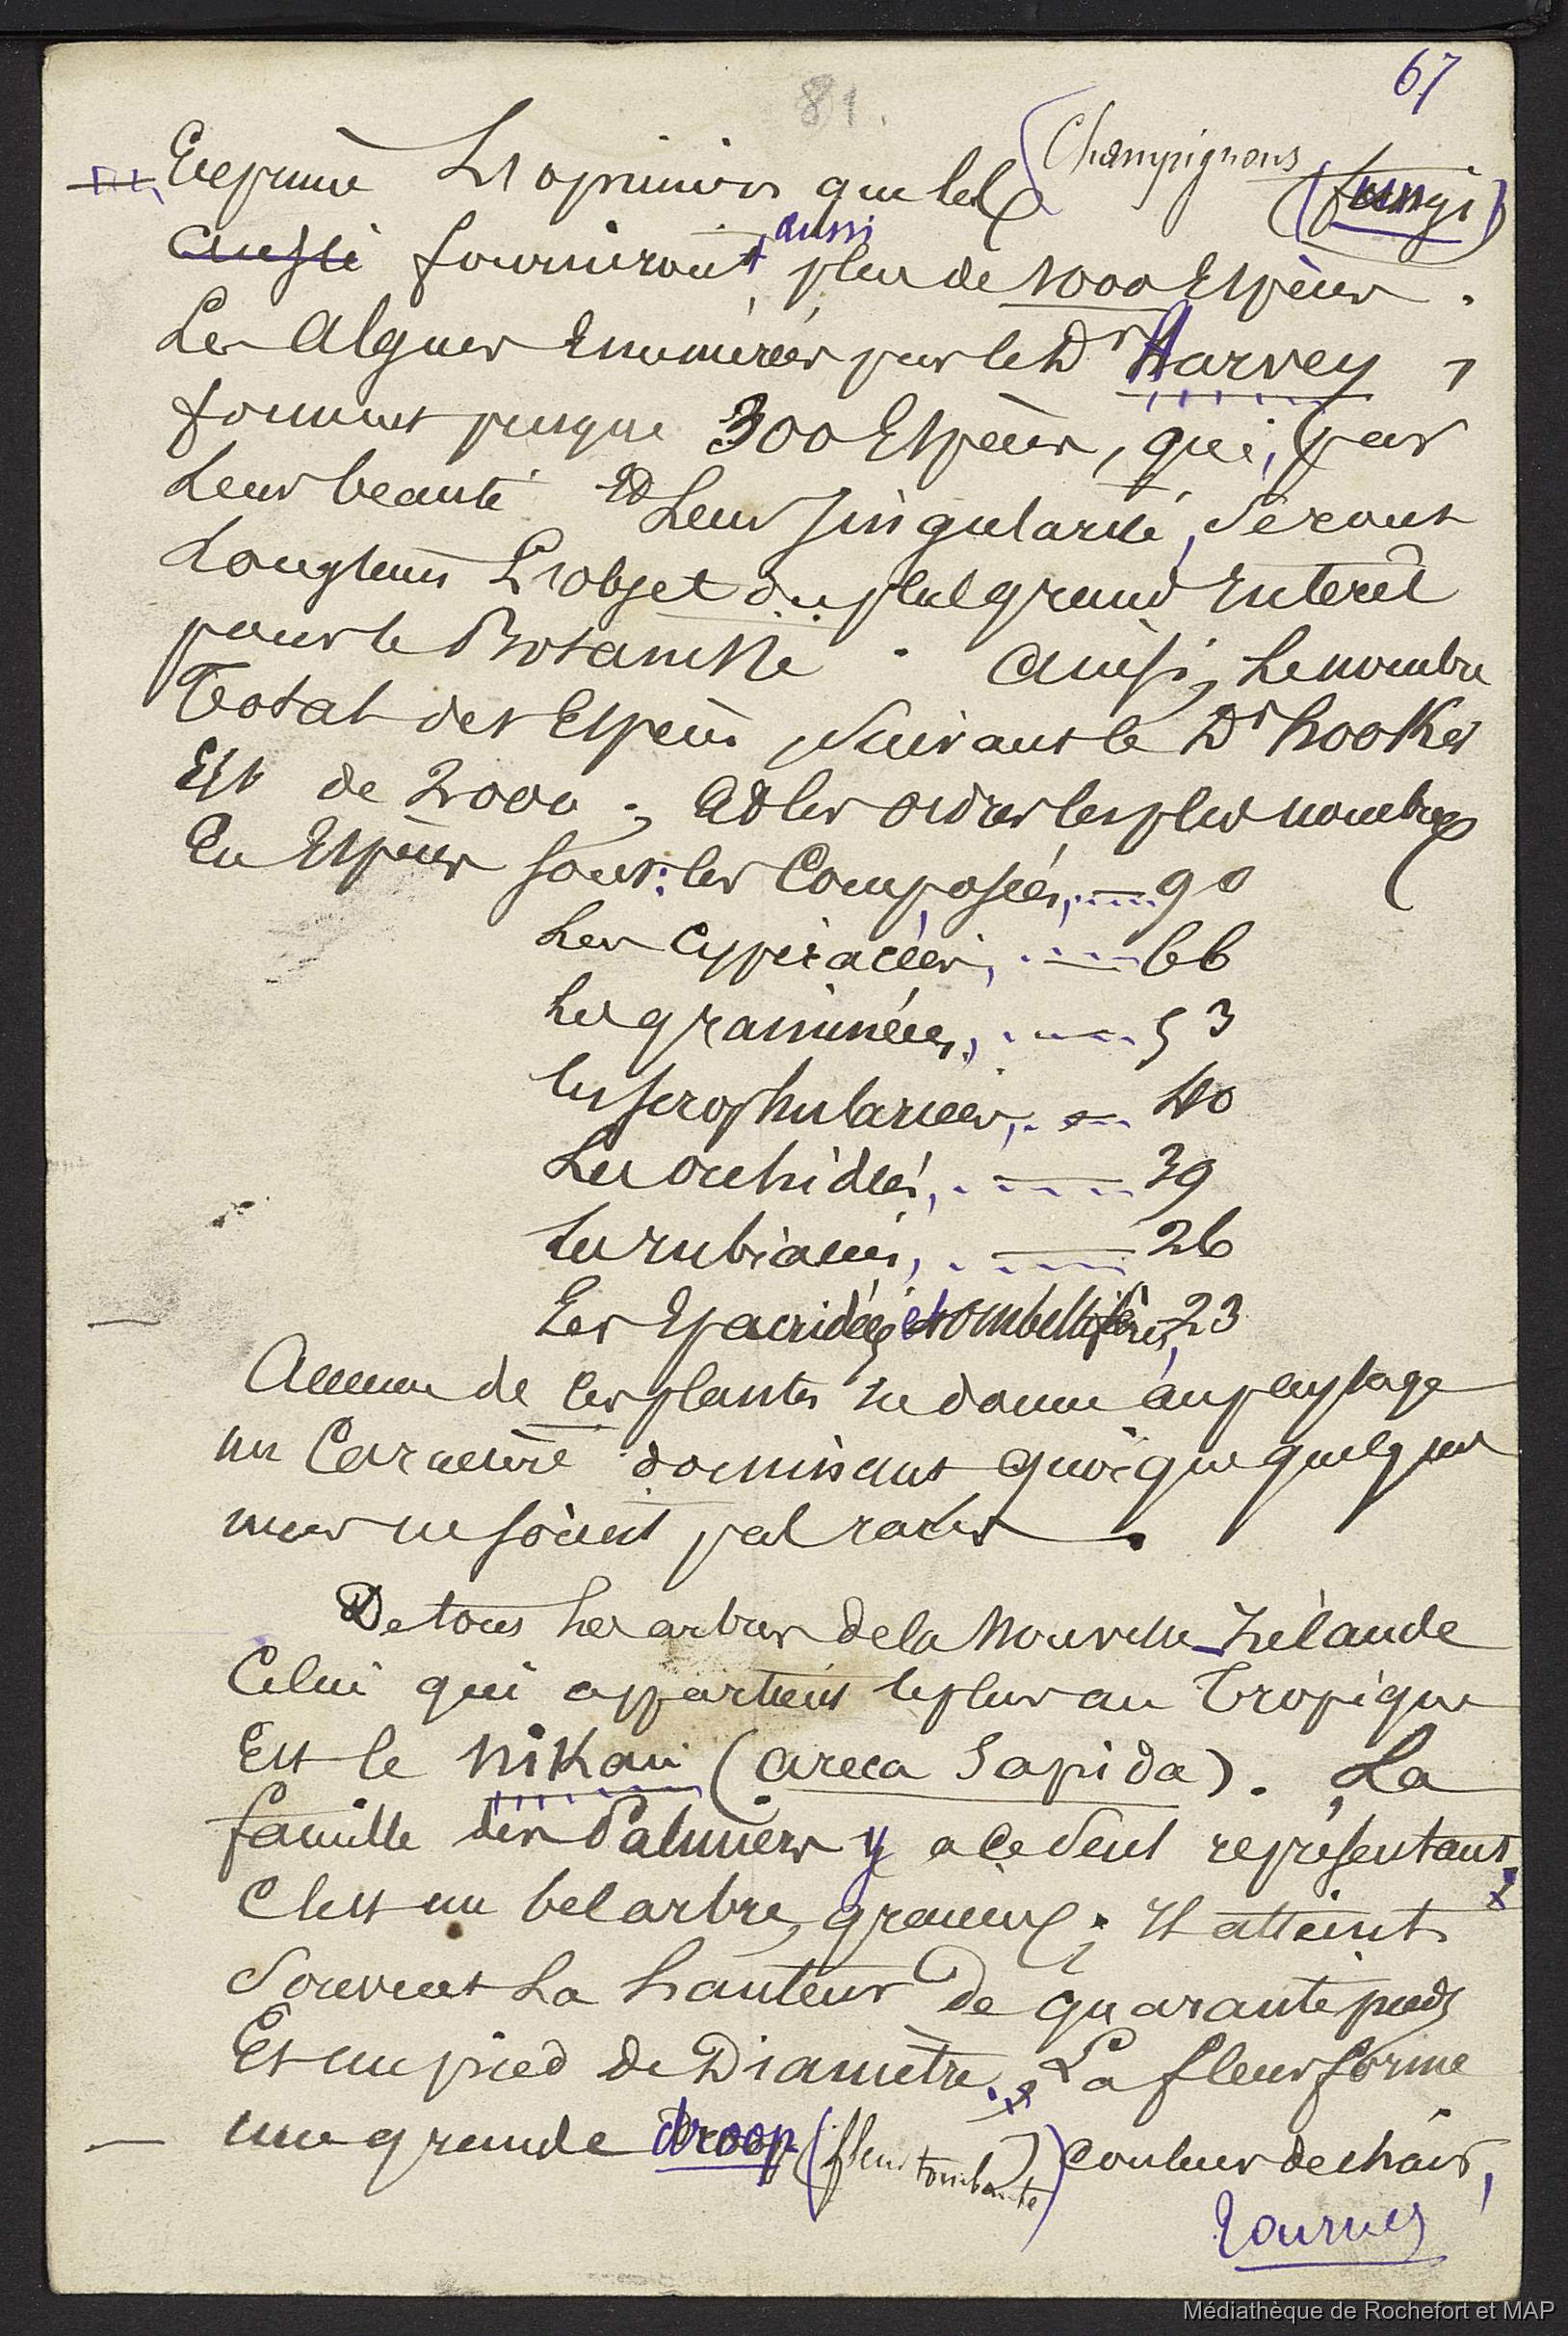 67
81.
Exprime L'opinion que les Champignons (fungi)
aussi fourniront aussi plus de 1000 Espèces.
Les Algues Enumérées par le Dr Harvey,
forment presque 300 Espèces, qui, par
Leur beauté Et Leur singularité, Seront
Longtems L'objet du plus grand Intérêt
pour le Botaniste. Ainsi, Le nombre
Total des Espèces, Suivant le Dr hooker
Est de 2000; Et les ordres les plus nombreux
En Espèces sont: les Composées, 90
Les Cypéracées, 66
Les graminées, 53
les scrophulariées, 40
Les orchidées, 39
Les rubiacées, 26
Les Epacridées et ombellifères, 23
Aucune de ces plantes ne donne au paysage
un Caractère dominant quoique quelques
unes ne soient pas rares.
De tous les arbres de la Nouvelle-Zélande
Celui qui appartient le plus au Tropique
Est le nikau (areca Sapida). La
famille des Palmiers y a ce seul représentant.
C'est un bel arbre, gracieux; Il atteint
Souvent La hauteur De quarante pieds
Et un pied de Diamètre. La fleur forme
une grande droop (fleur tombante) couleur de chair,
Tournez
Médiathèque de Rochefort et MAP